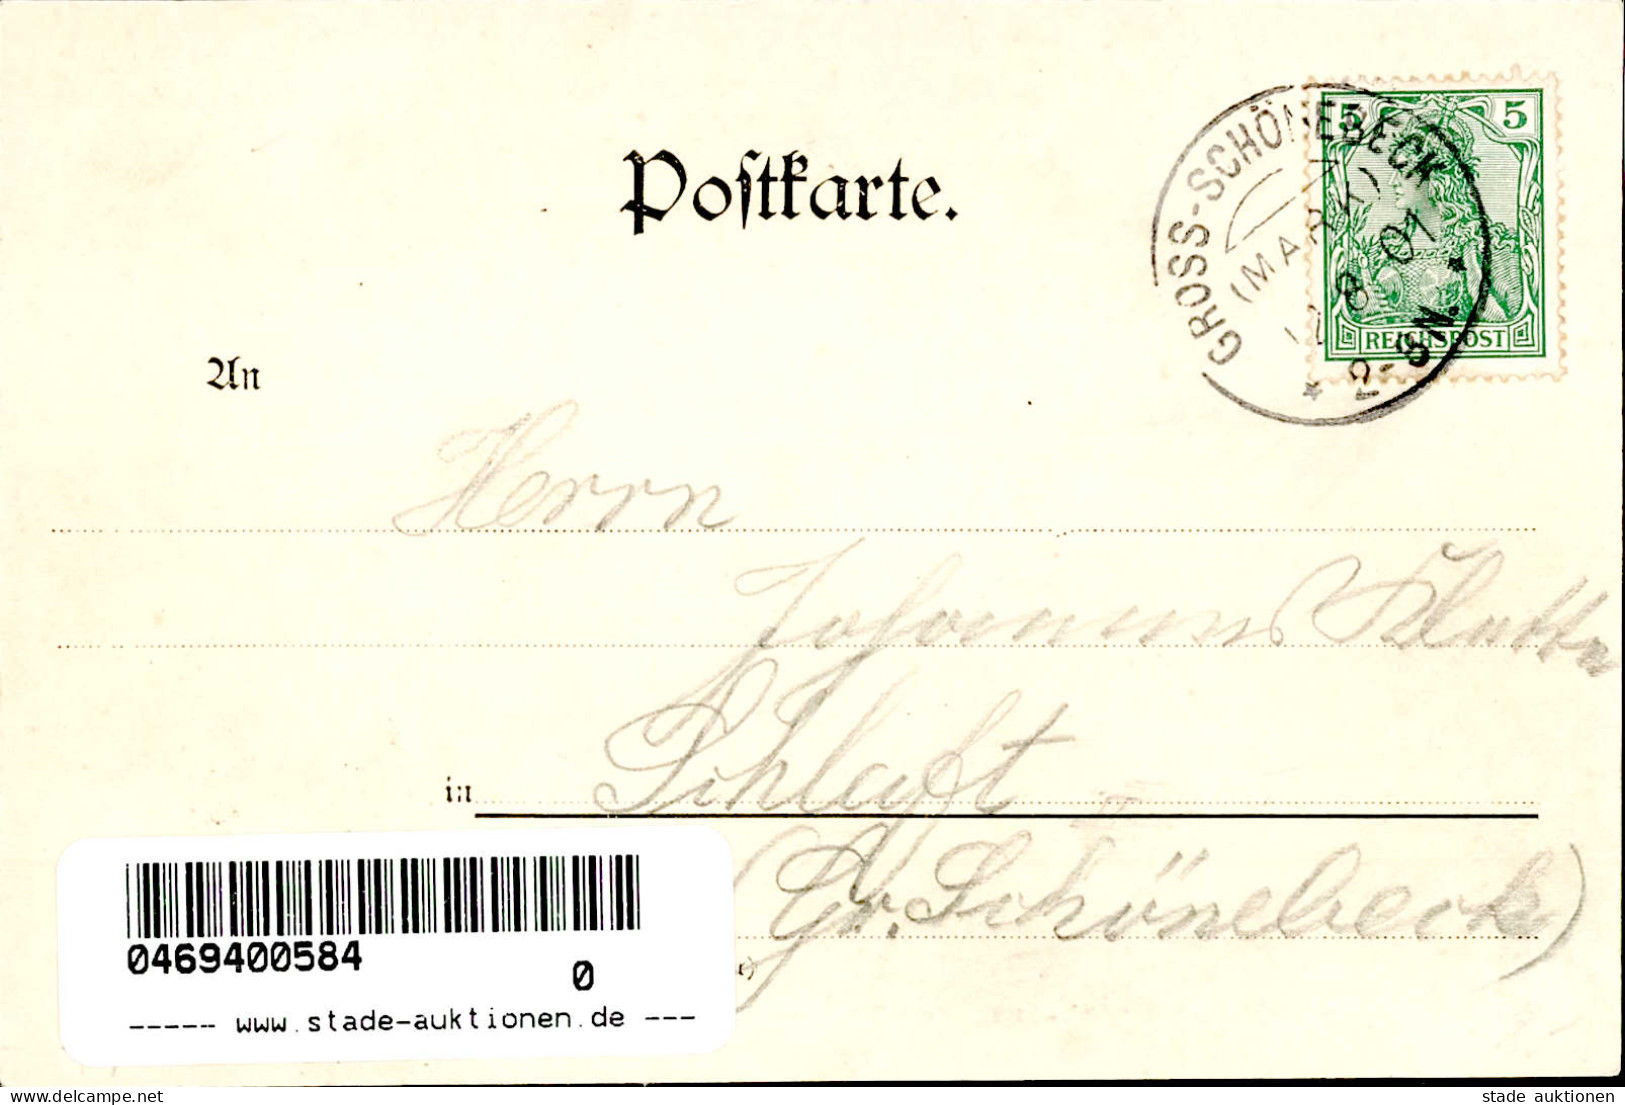 Postkarte.
GROSS-SCHÖNEBECK
(MARK)
8 01
5 5
REICHSPOST
An
Herrn
Johannes Klatte
in Schluft
(Gr. Schönebeck)
0469400584
0
----- www.stade-auktionen.de ---
www.delcampe.net
stade auktionen